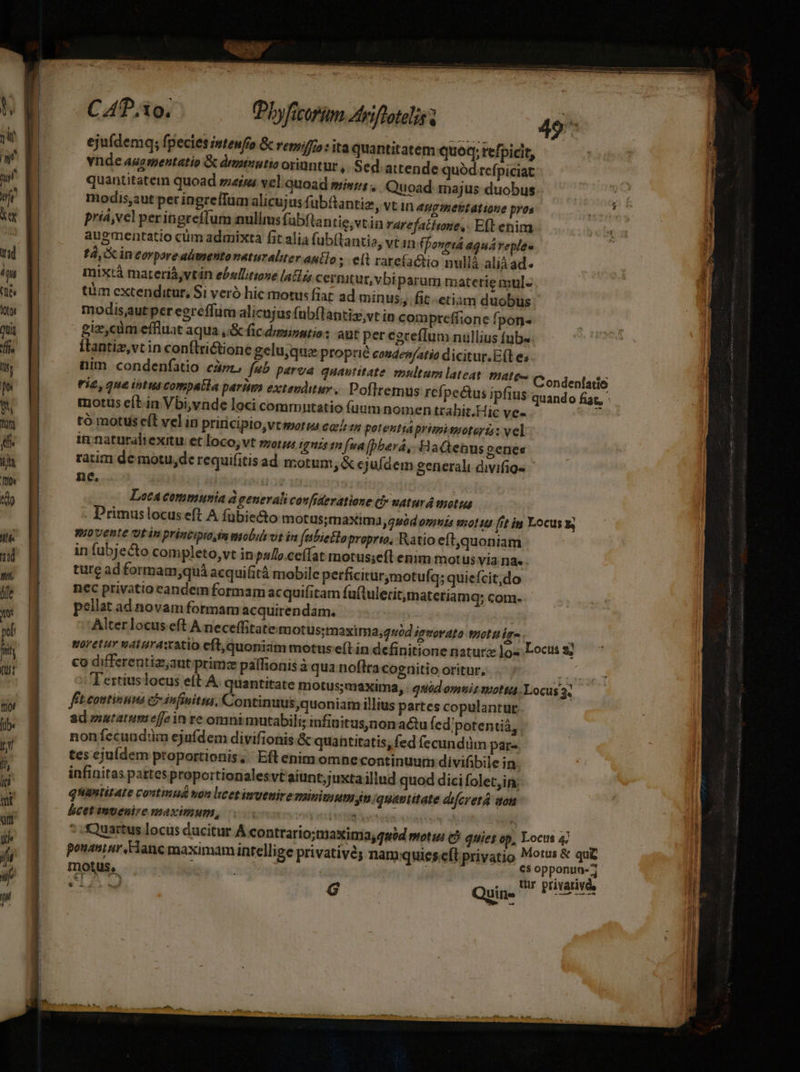 CAP.10. Phyſicorum Ariſtotelis 49
ejuſdemq; ſpecies intenſio & remiſſio: ita quantitatem quoq; reſpicit,
vnde augmentatio & diminutio oriuntur. Sed attende quòd reſpiciat
quantitatem quoad maius vel quoad minus. Quoad majus duobus
modis, aut per ingreſſum alicujus ſubſtantiæ, vt in augmentatione pro-
priâ, vel per ingreſſum nullius ſubſtantię, vt in rarefactione. Eſt enim
augmentatio cùm admixta fit alia ſubſtantia, vt in ſpongiâ aquâ reple-
tâ, & in corpore alimento naturaliter aucto; eſt rarefactio nullâ aliâ ad-
mixtâ materiâ, vt in ebullitione lactis cernitur, vbi parum materię mul-
tùm extenditur. Si verò hic motus fiat ad minus, fit etiam duobus
modis, aut per egreſſum alicujus ſubſtantiæ, vt in compreſſione ſpon-
giæ, cùm effluit aqua, & fic diminutio: aut per egreſſum nullius ſub-
ſtantiæ, vt in conſtrictione gelu, quæ propriè condenſatio dicitur. Eſt e-
nim condenſatio cùm ſub parva quantitate multum lateat mate-
riæ, quæ intus compacta parùm extenditur. Poſtremus reſpectus ipſius
Condenſatio
quando fiat.
motus eſt in Vbi, vnde loci commutatio ſuum nomen trahit. Hic ve-
rò motus eſt vel in principio, vt motus cœli in potentiâ primi motoris: vel
in naturali exitu et loco, vt motus ignis in ſua ſphæra. Hactenus gene-
ratim de motu, de requiſitis ad motum, & ejuſdem generali diviſio-
ne.
Loca communia à generali conſideratione & naturâ motus
Primus locus eſt A ſubiecto motus; maxima, quòd omnis motus ſit in
Locus 1
movente vt in principio, in mobili vt in ſubiecto proprio. Ratio eſt, quoniam
in ſubjecto completo, vt in puſto. ceſſat motus; eſt enim motus via na-
turę ad formam, quâ acquiſitâ mobile perficitur, motuſq; quieſcit, do
nec privatio eandem formam acquiſitam ſuſtulerit, materiamq; com-
pellat ad novam formam acquirendam.
Alter locus eſt A neceſſitate motus; maxima, quòd ignorato motu ig-
noretur natura: ratio eſt, quoniam motus eſt in definitione naturæ lo-
Locus 2
co differentiæ, aut primæ paſſionis à qua noſtra cognitio oritur.
Tertius locus eſt A quantitate motus; maxima, quòd omnis motus
Locus 3
ſit continuus & infinitus. Continuus, quoniam illius partes copulantur
ad mutatum eſſe in re omni mutabili; infinitus, non actu ſed potentiâ,
non ſecundùm ejuſdem diviſionis & quantitatis, ſed ſecundùm par-
tes ejuſdem proportionis. Eſt enim omne continuum diviſibile in
infinitas partes proportionales vt aiunt, juxta illud quod dici ſolet, in
quantitate continuâ non licet invenire minimum, in quantitate diſcretâ non
licet invenire maximum.
Quartus locus ducitur A contrario; maxima, quòd motus & quies op-
ponantur. Hanc maximam intellige privativè; nam quies eſt privatio
motus.
Locus 4
Motus & quies
opponun-
tur privativè.
G Quin-